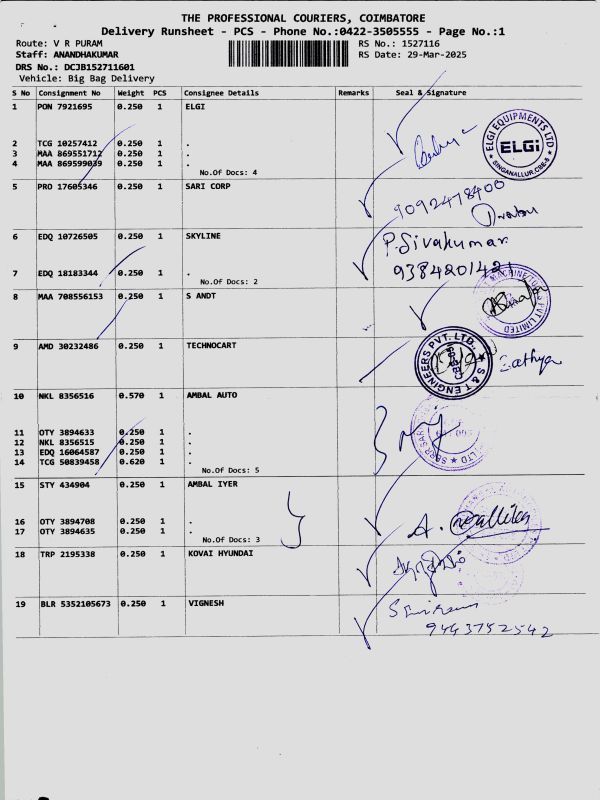 THE PROFESSIONAL COURIERS, COIMBATORE
Delivery Runsheet - PCS - Phone No.:0422-3505555 - Page No.:1
Route: V R PURAM
RS No.: 1527116
Staff: ANANDHAKUMAR
RS Date: 29-Mar-2025
DRS No.: DCJB152711601
Vehicle: Big Bag Delivery
S No Consignment No Weight PCS Consignee Details Remarks Seal & Signature
1 PON 7921695 0.250 1 ELGI
ELGI EQUIPMENTS LTD
ELGi
SINGANALLUR, CBE-5
2 TCG 10257412 0.250 1 .
3 MAA 869551712 0.250 1 .
4 MAA 869599039 0.250 1 .
No.Of Docs: 4
5 PRO 17605346 0.250 1 SARI CORP
9092478400
6 EDQ 10726505 0.250 1 SKYLINE
P. Sivakumar
7 EDQ 18183344 0.250 1 .
9384201421
No.Of Docs: 2
8 MAA 708556153 0.250 1 S ANDT
9 AMD 30232486 0.250 1 TECHNOCART
S & T ENGINEERS PVT. LTD.
Sathya
10 NKL 8356516 0.570 1 AMBAL AUTO
11 OTY 3894633 0.250 1 .
12 NKL 8356515 0.250 1 .
13 EDQ 16064587 0.250 1 .
14 TCG 50839458 0.620 1 .
No.Of Docs: 5
15 STY 434904 0.250 1 AMBAL IYER
16 OTY 3894708 0.250 1 .
17 OTY 3894635 0.250 1 .
No.Of Docs: 3
18 TRP 2195338 0.250 1 KOVAI HYUNDAI
19 BLR 5352105673 0.250 1 VIGNESH
9443752542